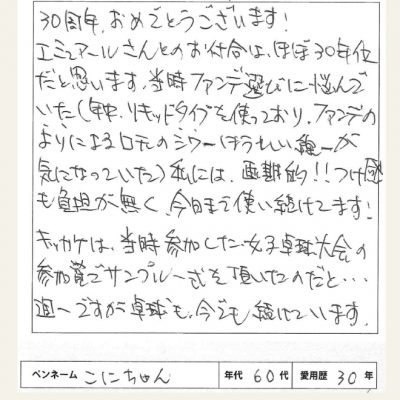 30周年、おめでとうございます!
エミュアールさんとのお付合は、ほぼ30年位
だと思います。当時ファンデ選びに悩んで
いた(年中、リキッドタイプを使っており、ファンデの
よりによる口元のシワ一ほうれい線一が
気になっていた)私には、画期的!!つけ感
も負担が無く、今日まで使い続けてます!
キッカケは、当時参加した女子卓球大会の
参加賞でサンプル一式を頂いたのだと・・・
週一ですが卓球も、今でも続けています。
ペンネーム こにちゃん 年代 60代 愛用歴 30年